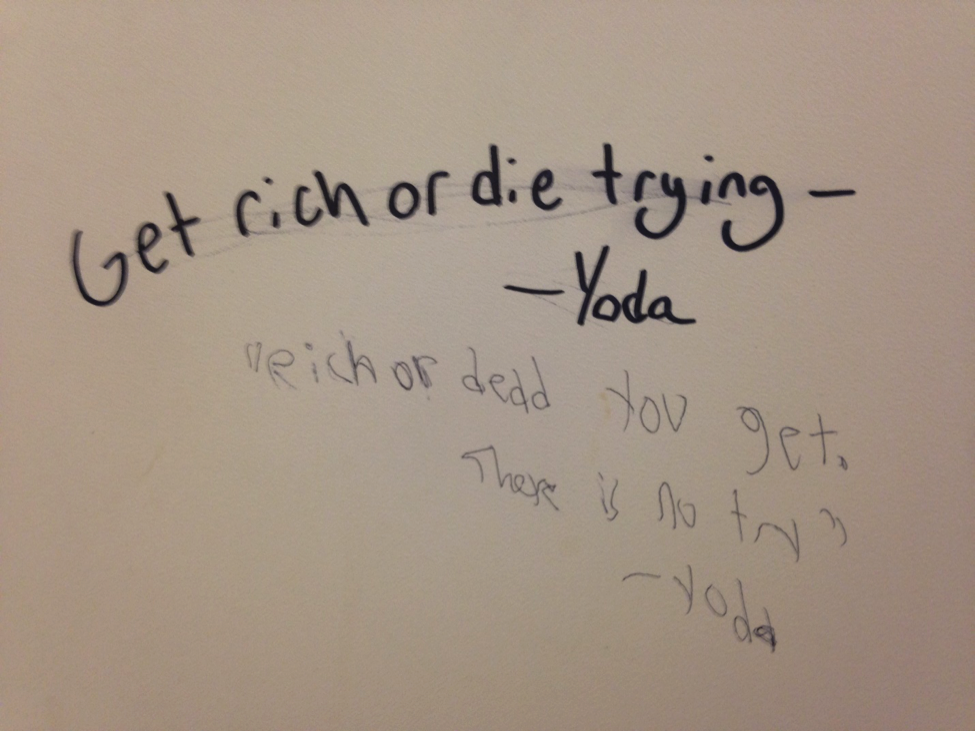 Get rich or die trying –
– Yoda
"Rich or dead you get.
There is no try"
– Yoda